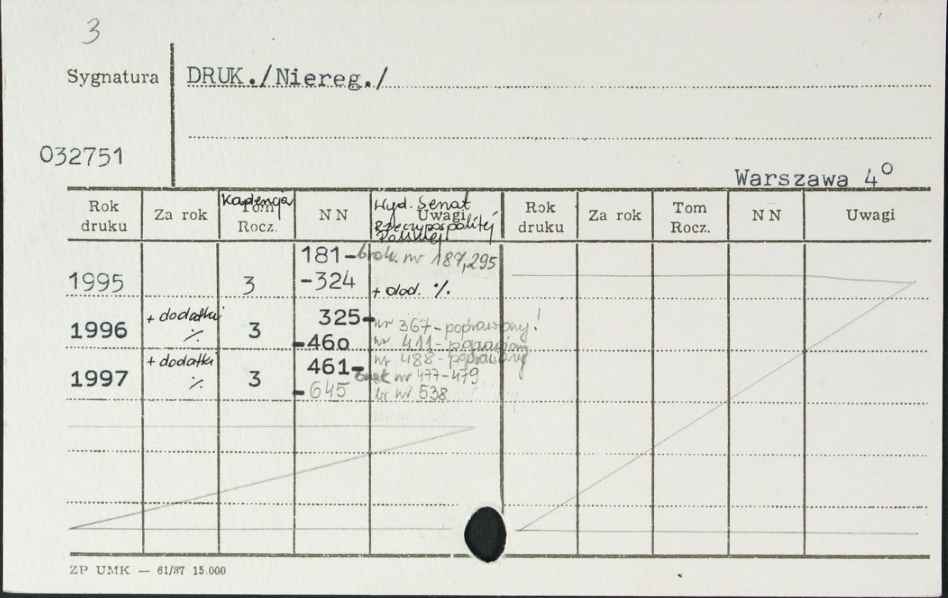 3
Sygnatura DRUK./Niereg./
032751
Warszawa 4°
Rok druku Za rok Kadencja Tom Rocz. NN Wyd. Senat Rzeczypospolitej Polskiej Uwagi Rok druku Za rok Tom Rocz. NN Uwagi
1995 3 181- -324 brak nr 187,295
+ dod. %
1996 + dodatki % 3 325- -460 nr 367-poprawiony!
nr 411-poprawiony
1997 + dodatki % 3 461- -645 nr 488-poprawiony
brak nr 477-479
br nr 538
ZP UMK — 61/87 15.000